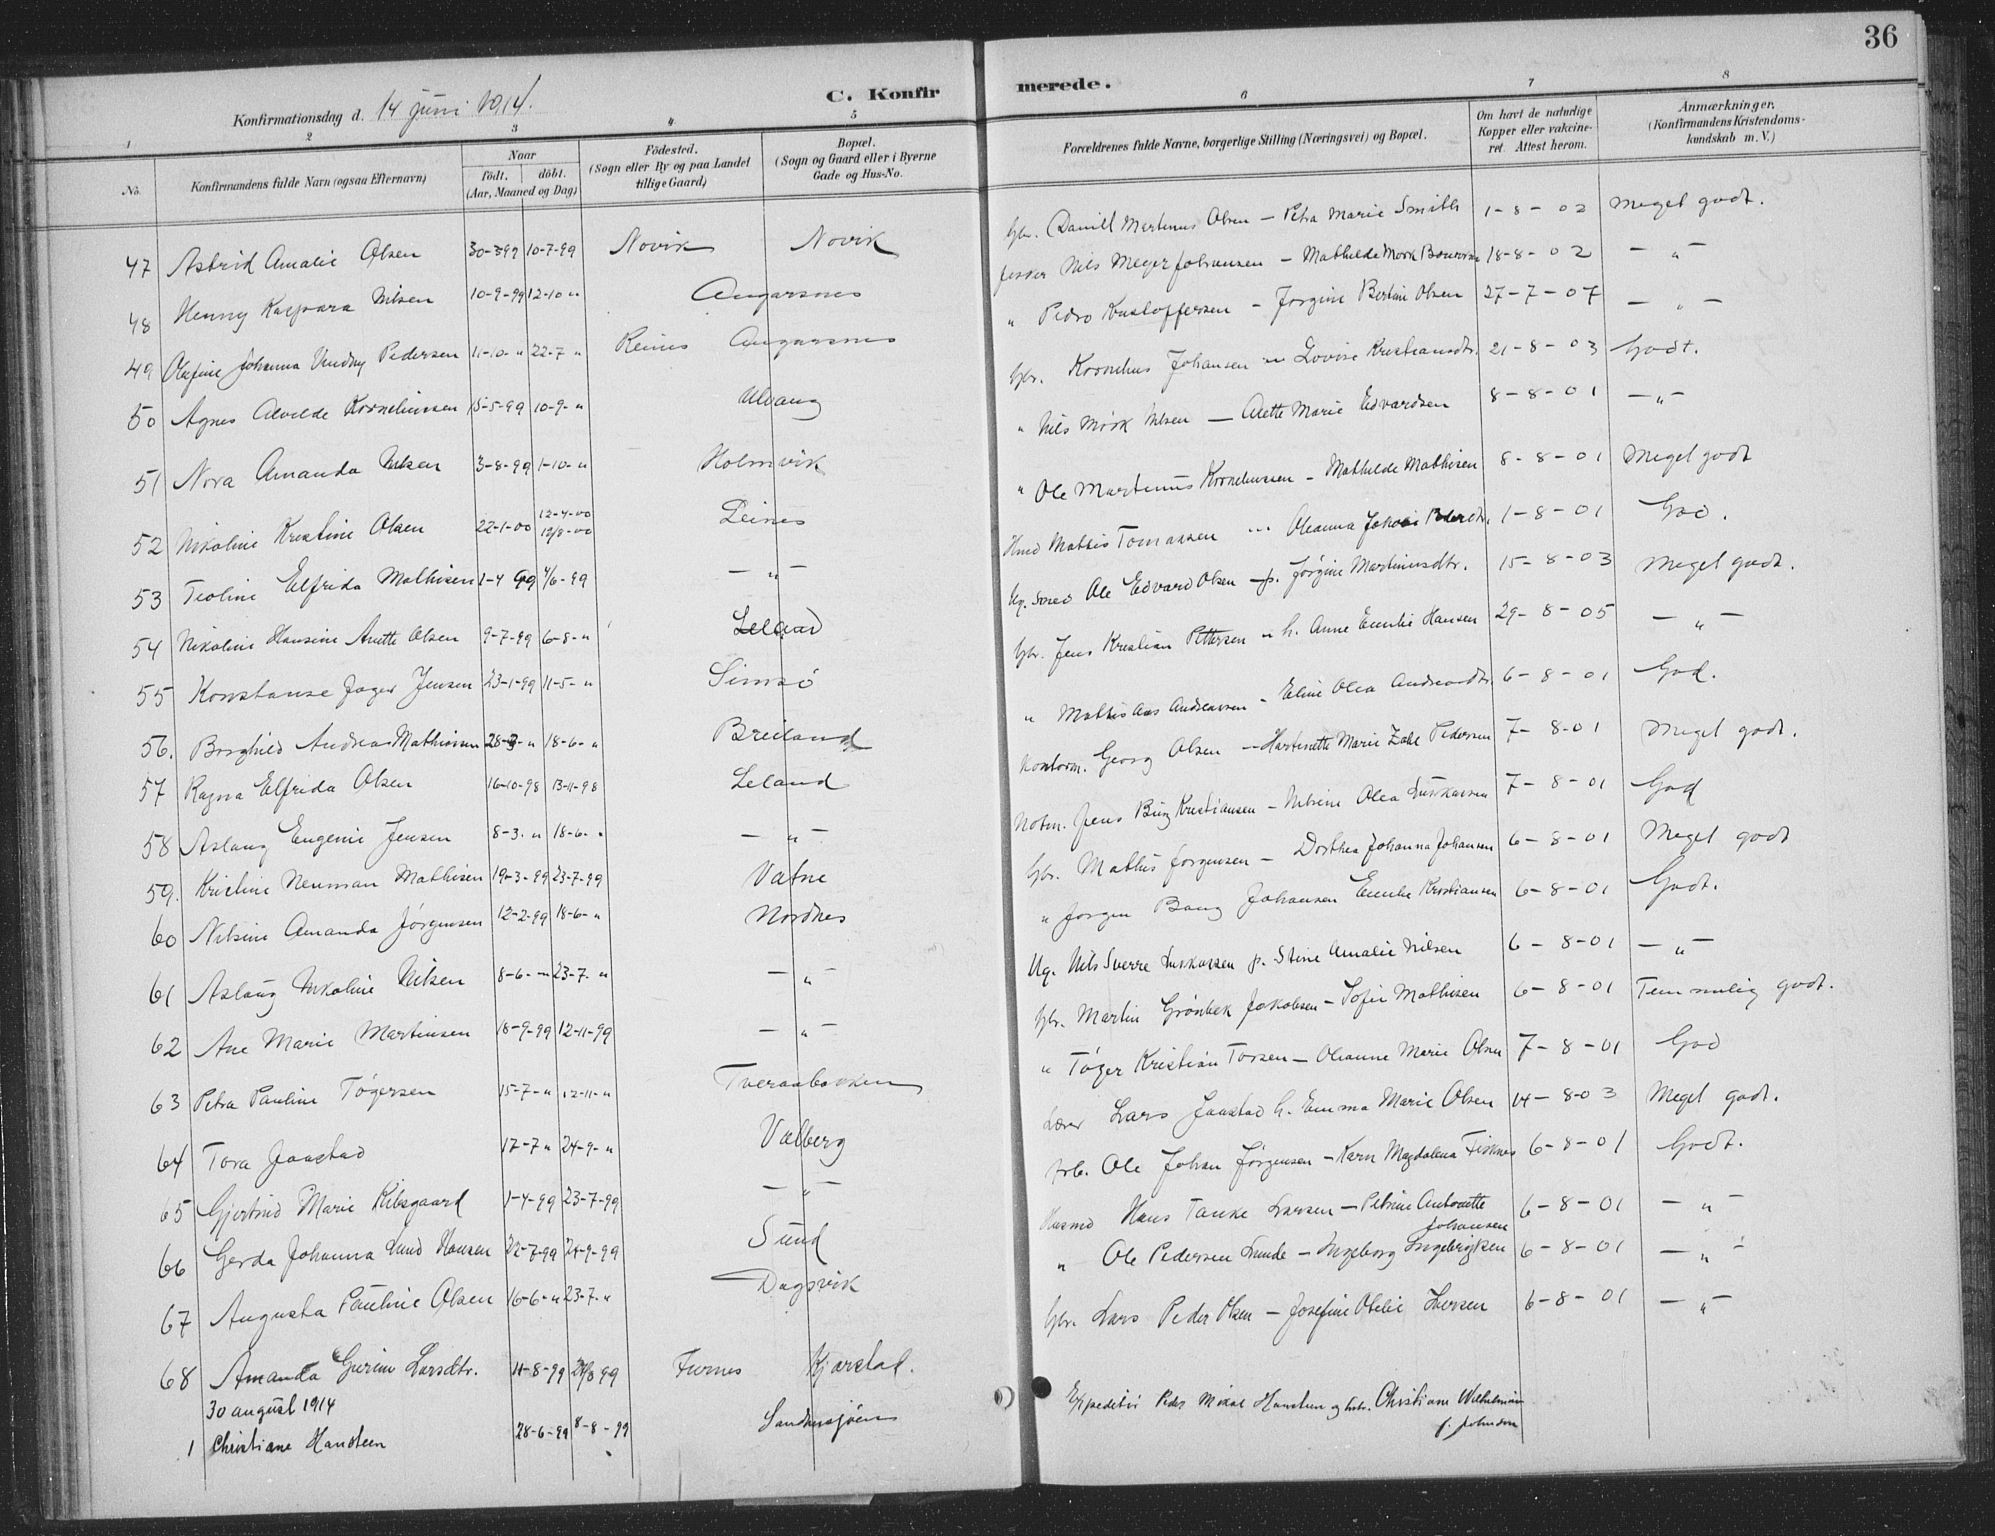 36
Konfirmationsdag d. 14 juni 1914.
C. Konfirmerede.
1 2 3 4 5 6 7 8
No.
Konfirmandens fulde Navn (ogsaa Efternavn)
Naar
födt. döbt.
(Aar, Maaned og Dag)
Födested.
(Sogn eller By og paa Landet
tillige Gaard)
Bopæl.
(Sogn og Gaard eller i Byerne
Gade og Hus-No.
Forældrenes fulde Navne, borgerlige Stilling (Næringsvei) og Bopæl.
Om havt de naturlige
Kopper eller vakcine-
ret. Attest herom.
Anmærkninger.
(Konfirmandens Kristendoms-
kundskab m. V.)
47 Astrid Amalie Olsen 30-3-99 10-7-99 Novik Novik Gbr. Daniel Martinus Olsen — Petra Marie Smith 1-8-02 Meget godt.
48 Henny Kaspara Nilsen 10-9-99 12-10 " Angarsnes Nils Meyer Johansen — Mathilde Mørk 18-8-02 — " —
49 Olefine Johanna Pedersen 11-10- " 22-7 " Reines Angarsnes " Pedro Kristoffersen — Jørgine Bertine Olsen 27-7-07 — " —
50 Agnes Alvilde Korneliussen 15-5-99 10-9- " Ulvang Gbr. Kornelius Johansen — Lovise Kristiansdtr. 21-8-03 Godt.
51 Nora Amanda Nilsen 3-8-99 1-10- " Holmvik " Nils Mørk Nilsen — Anette Marie Edvardsen 8-8-01 — " —
52 Nikoline Kristine Olsen 22-1-00 12-4-00 Leines " Ole Martinus Korneliussen — Mathilde Mathisen 8-8-01 Meget godt
53 Teoline Elfrida Mathisen 1-4 99 4/6-99 — " — Hmd Mathis Tomassen — Oleanna 1-8-01 God.
54 Nikoline Hansine Anette Olsen 9-7-99 6-8- " Leland Ug. Smed Ole Edvard Olsen p. Jørgine Martinusdtr. 15-8-03 Meget godt.
55 Konstanse Jager Jensen 23-1-99 11-5- " Simsø Gbr. Jens Kristian Pettersen h. Anne Emilie Hansen 29-8-05 — " —
56. Borghild Andrea Mathisen 28-3- " 18-6- " Breiland " Mathis Aas Andreassen — Eline Olea Andreasdtr. 6-8-01 God.
57 Ragna Elfrida Olsen 16-10-98 13-11-98 Leland Kontorm. Georg Olsen — Marie Zahl Pedersen 7-8-01 Meget godt.
58 Aslaug Eugenie Jensen 8-3- " 18-6- " — " — Jens Bing Kristiansen — Nilsine Olea 7-8-01 God
59. Kristine Neuman Mathisen 19-3-99 23-7-99 Vatne Gbr. Mathis Jørgensen — Dorthea Johanna Johansen 6-8-01 Meget godt
60 Nilsine Amanda Jörgensen 12-2-99 18-6- " Nordnes " Jørgen Bang Johansen Emilie Kristiansen 6-8-01 Godt.
61 Aslaug Nikoline Nilsen 8-6- " 23-7- " — " — Ug. Nils Sverre p. Stine Amalie Nilsen 6-8-01 — " —
62 Ane Marie Martinsen 18-9-99 12-11-99 — " — Gbr. Martin Grønbek Jakobsen — Sofie Mathisen 6-8-01 Temmelig godt.
63 Petra Pauline Tögersen 15-7- " 12-11- " Tveraabakken " Töger Kristian Torsen — Olianne Marie Olsen 7-8-01 God
64 Tora Jaastad 17-7 " 24-9- " Valberg Lærer Lars Jaastad h. Emma Marie Olsen 14-8-03 Meget godt.
65 Gjertrud Marie Kibsgaard 1-4-99 23-7-99 — " — Arb. Ole Johan Jørgensen — Karn Magdalena 6-8-01 Godt.
66 Gerda Johanna Lund Hansen 22-7-99 24-9-99 Sund Husmd Hans Tanke Larsen — Petrine Antonette Johansen 6-8-01 — " —
67 Augusta Pauline Olsen 16-6- " 23-7- " Dagsvik " Ole Pedersen Lunde — Ingeborg Ingebrigtsen 6-8-01 — " —
68 Amanda Gurine Larsdtr. 11-8-99 99 Furnes Kjærstad. Gbr. Lars Peder Olsen — Josefine Otelie Iversen 6-8-01 — " —
30 august 1914
1 Christiane Hansteen 28-6-99 8-8-99 Sandnesjöen Expeditör Peder Mikal Hansteen og hstr. Christiane Wilhelmine f. Johnson